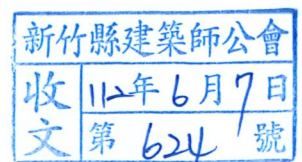 新竹縣建築師公會
收文
112年6月7日
第624號